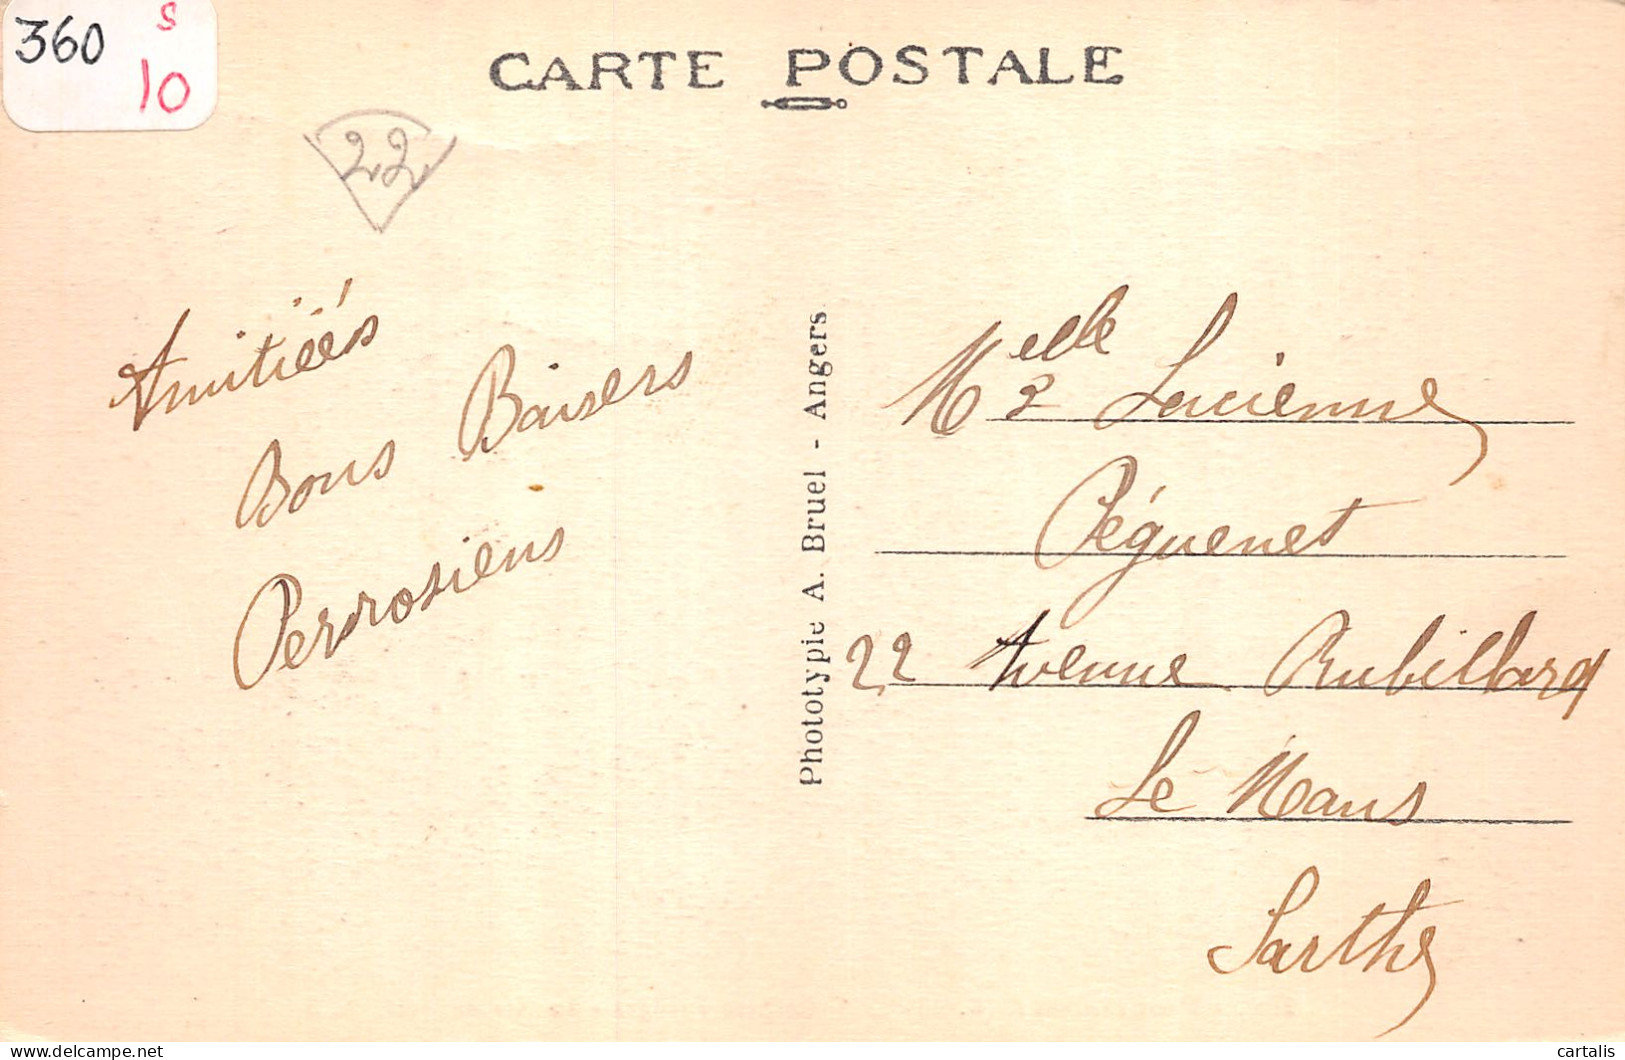 360 S
10
CARTE POSTALE
22
Amitiés
Bons Baisers
Perrosiens
Phototypie A. Bruel - Angers
Melle Lucienne
Péguenet
22 Avenue Rubillard
Le Mans
Sarthe
delcampe.net
cartalis